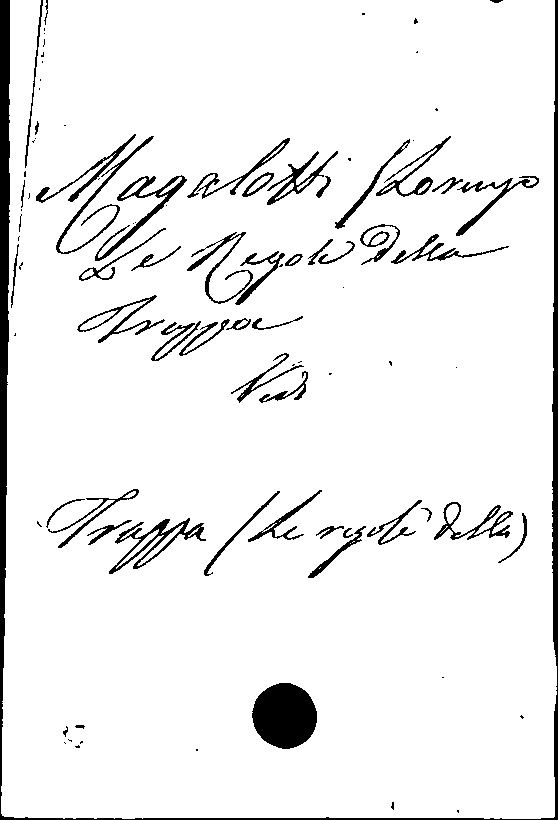 Magalotti (Lorenzo
Le Regole Della
Trappa
Vedi
Trappa (Le regole della)